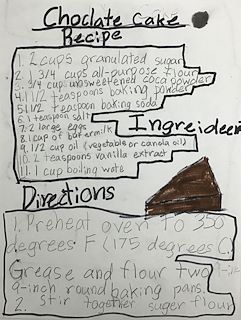 Choclate Cake
Recipe
1. 2 cups granulated sugar
2. 1 3/4 cups all-purpose flour
3. 3/4 cup unsweetened coca powder
4. 1 1/2 teaspoons baking powder
5. 1 1/2 teaspoon baking soda
6. 1 teaspoon salt
7. 2 large eggs
8. 1 cup of butermilk
9. 1/2 cup oil (vegetable or canola oil)
10. 2 teaspoons vanilla extract
11. 1 cup boiling wate
Ingreideen
Directions
1. Preheat oven to 350
degrees F (175 degrees C)
Grease and flour two
9-inch round baking pans.
2. Stir together suger flour